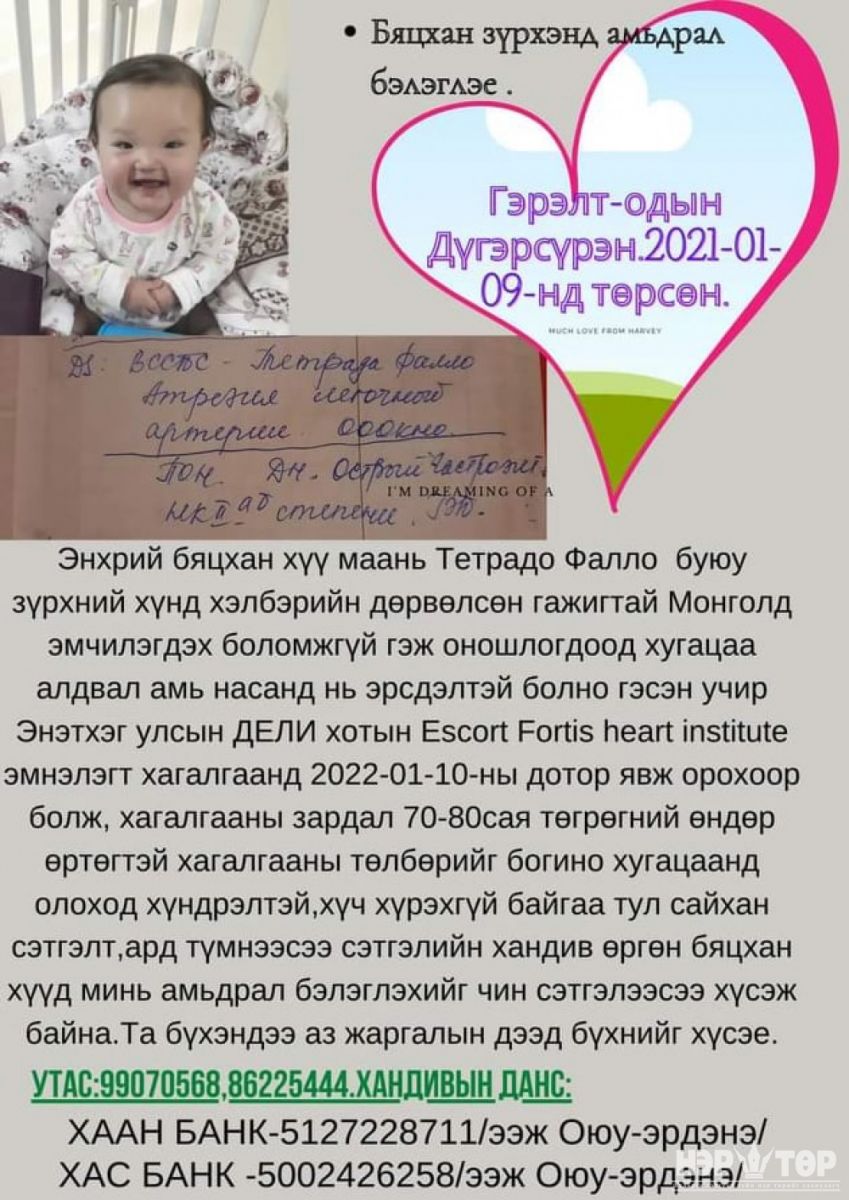 • Бяцхан зүрхэнд амьдрал
бэлэглэе .
Гэрэлт-одын
Дүгэрсүрэн.2021-01-
09-нд төрсөн.
MUCH LOVE FROM HARVEY
Ds: ВССТС - Тетрада Фалло
Атрезия легочный
артерии. ОООкно.
ПОН. ДН. Острый Гастроэнт.
I'M DREAMING OF A
НК II аб степени.
Энхрий бяцхан хүү маань Тетрадо Фалло буюу
зүрхний хүнд хэлбэрийн дөрвөлсөн гажигтай Монголд
эмчилэгдэх боломжгүй гэж оношлогдоод хугацаа
алдвал амь насанд нь эрсдэлтэй болно гэсэн учир
Энэтхэг улсын ДЕЛИ хотын Escort Fortis heart institute
эмнэлэгт хагалгаанд 2022-01-10-ны дотор явж орохоор
болж, хагалгааны зардал 70-80сая төгрөгний өндөр
өртөгтэй хагалгааны төлбөрийг богино хугацаанд
олоход хүндрэлтэй,хүч хүрэхгүй байгаа тул сайхан
сэтгэлт,ард түмнээсээ сэтгэлийн хандив өргөн бяцхан
хүүд минь амьдрал бэлэглэхийг чин сэтгэлээсээ хүсэж
байна.Та бүхэндээ аз жаргалын дээд бүхнийг хүсэе.
УТАС:99070568,86225444.ХАНДИВЫН ДАНС:
ХААН БАНК-5127228711/ээж Оюу-эрдэнэ/
ХАС БАНК -5002426258/ээж Оюу-эрдэнэ/
НЭР ТӨР